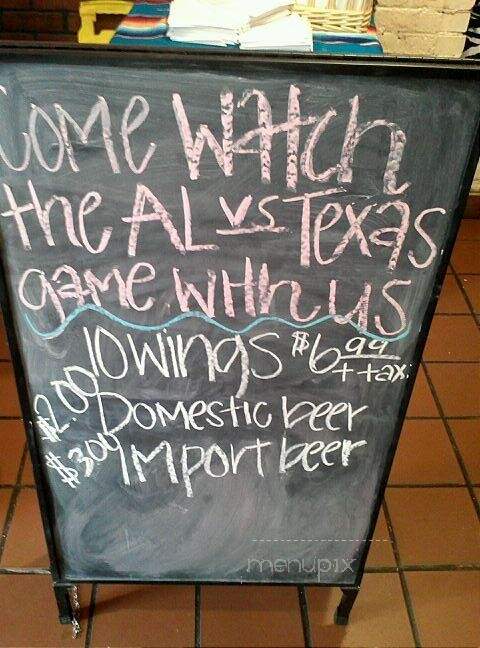 Come Watch
the AL vs Texas
game with us
10 wings $6.99
+ tax
$2.00 Domestic beer
$3.00 Import beer
menupix